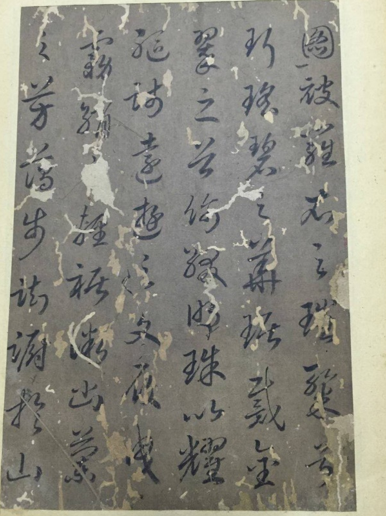 圖披羅衣之璀粲兮
珥瑤碧之華琚戴金
翠之首飾綴明珠以耀
軀踐遠遊之文履曳
霧綃輕裾微幽蘭
之芳藹步踟躕於山